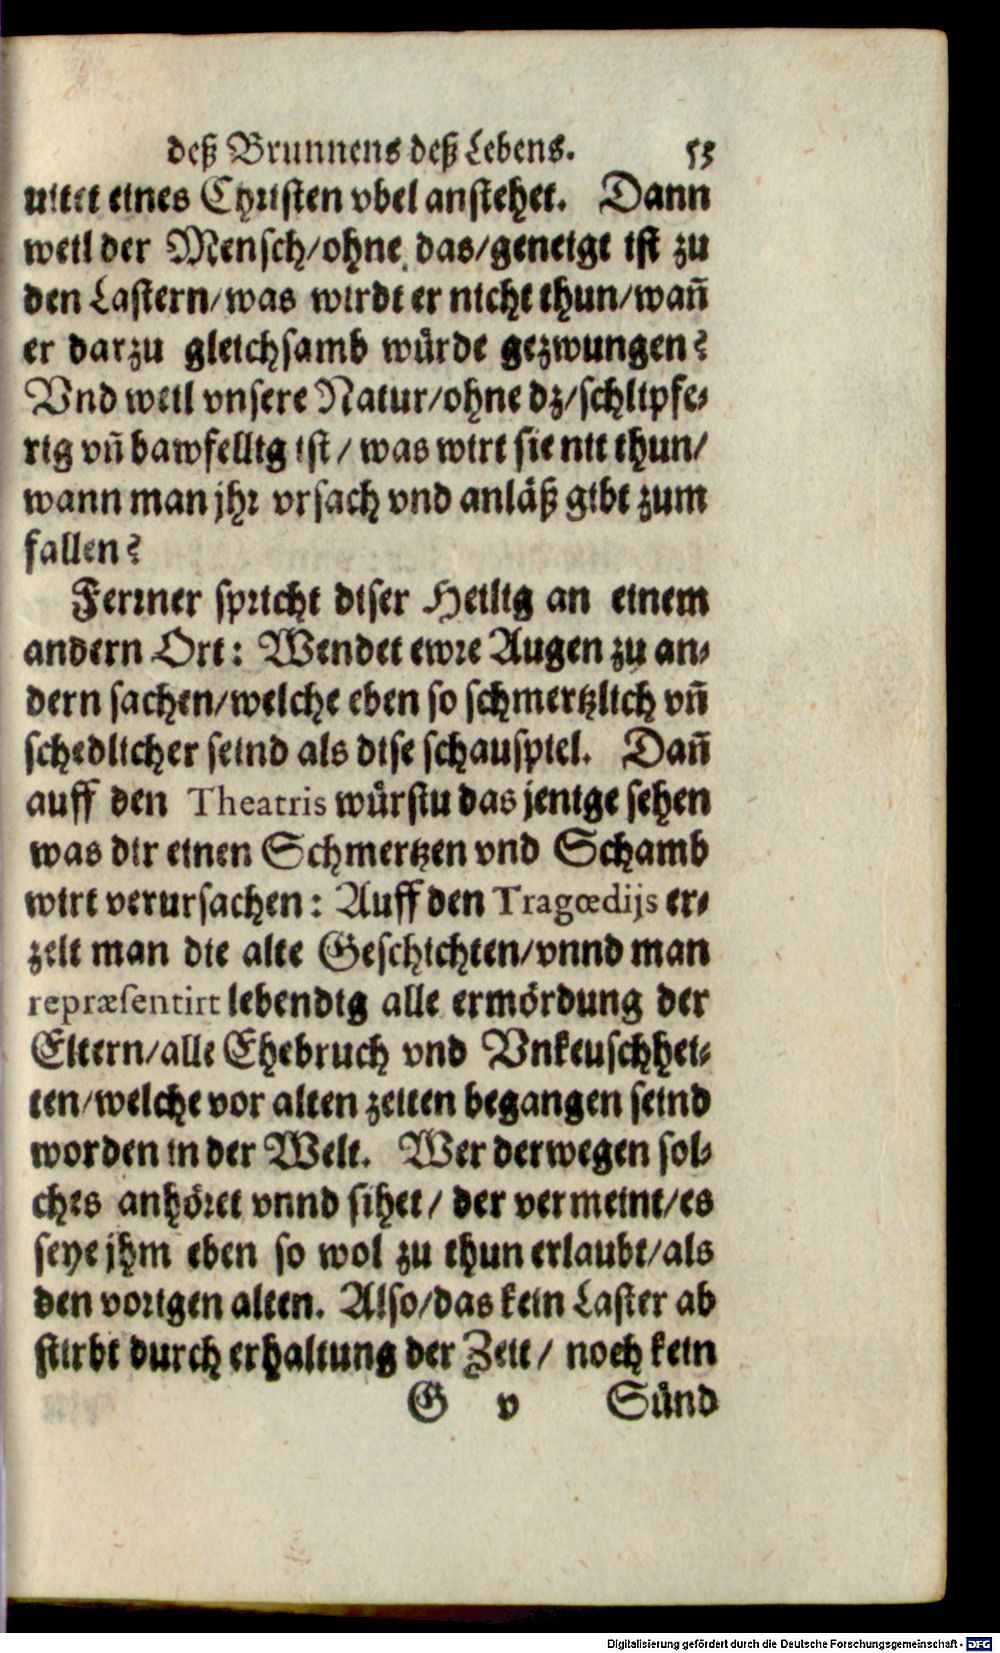 deß Brunnens deß Lebens. 53
uitet eines Christen vbel anstehet. Dann
weil der Mensch/ohne das/geneigt ist zu
den Lastern/was wirdt er nicht thun/wañ
er darzu gleichsamb würde gezwungen?
Vnd weil vnsere Natur/ohne dz/schlipfe-
rig vñ bawfellig ist/was wirt sie nit thun/
wann man jhr vrsach vnd anläß gibt zum
fallen?
Ferrner spricht diser Heilig an einem
andern Ort: Wendet ewre Augen zu an-
dern sachen/welche eben so schmertzlich vñ
schedlicher seind als dise schauspiel. Dañ
auff den Theatris würstu das jenige sehen
was dir einen Schmertzen vnd Schamb
wirt verursachen: Auff den Tragœdijs er-
zelt man die alte Geschichten/vnnd man
repræsentirt lebendig alle ermördung der
Eltern/alle Ehebruch vnd Vnkeuschhei-
ten/welche vor alten zeiten begangen seind
worden in der Welt. Wer derwegen sol-
ches anhöret vnnd sihet/der vermeint/es
seye jhm eben so wol zu thun erlaubt/als
den vorigen alten. Also/das kein Laster ab
stirbt durch erhaltung der Zeit/noch kein
G v Sünd
Digitalisierung gefördert durch die Deutsche Forschungsgemeinschaft - DFG